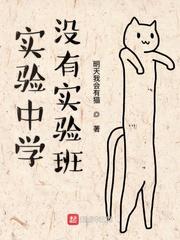 没有实验班
实验中学
明天我会有猫 ◎ 著